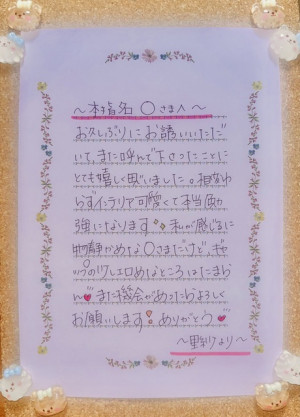 ～本指名 〇さまへ～
お久しぶりにお誘いいただ
いて、また呼んで下さったことに
とても嬉しく思いました。相変わ
らずインテリア可愛くて本当勉
強になります 私が感じるに
かめな〇さまだけど、ギャ
ップのソレエロめなところはたまら
ん また機会があったらよろしく
お願いします ありがとう
～野 より～